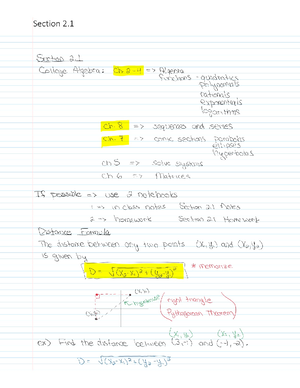 Section 2.1
Section 2.1
College Algebra: Ch 2-4 => Algebra
functions - quadratics
polynomials
rationals
exponentials
logarithms
Ch. 8 => sequences and series
Ch. 7 => conic sections parabolas
ellipses
hyperbolas
Ch 5 => solve systems
Ch 6 => Matrices
If possible => use 2 notebooks
1 => in class notes Section 2.1 Notes
2 => homework Section 2.1 Homework
Distance Formula
The distance between any two points (x₁, y₁) and (x₂, y₂)
is given by
D = √(x₂-x₁)²+(y₂-y₁)² * memorize
right triangle
Pythagorean Theorem
(x₁, y₁) (x₂, y₂)
ex) Find the distance between (3,-1) and (-4,-2).
D = √(x₂-x₁)²+(y₂-y₁)²